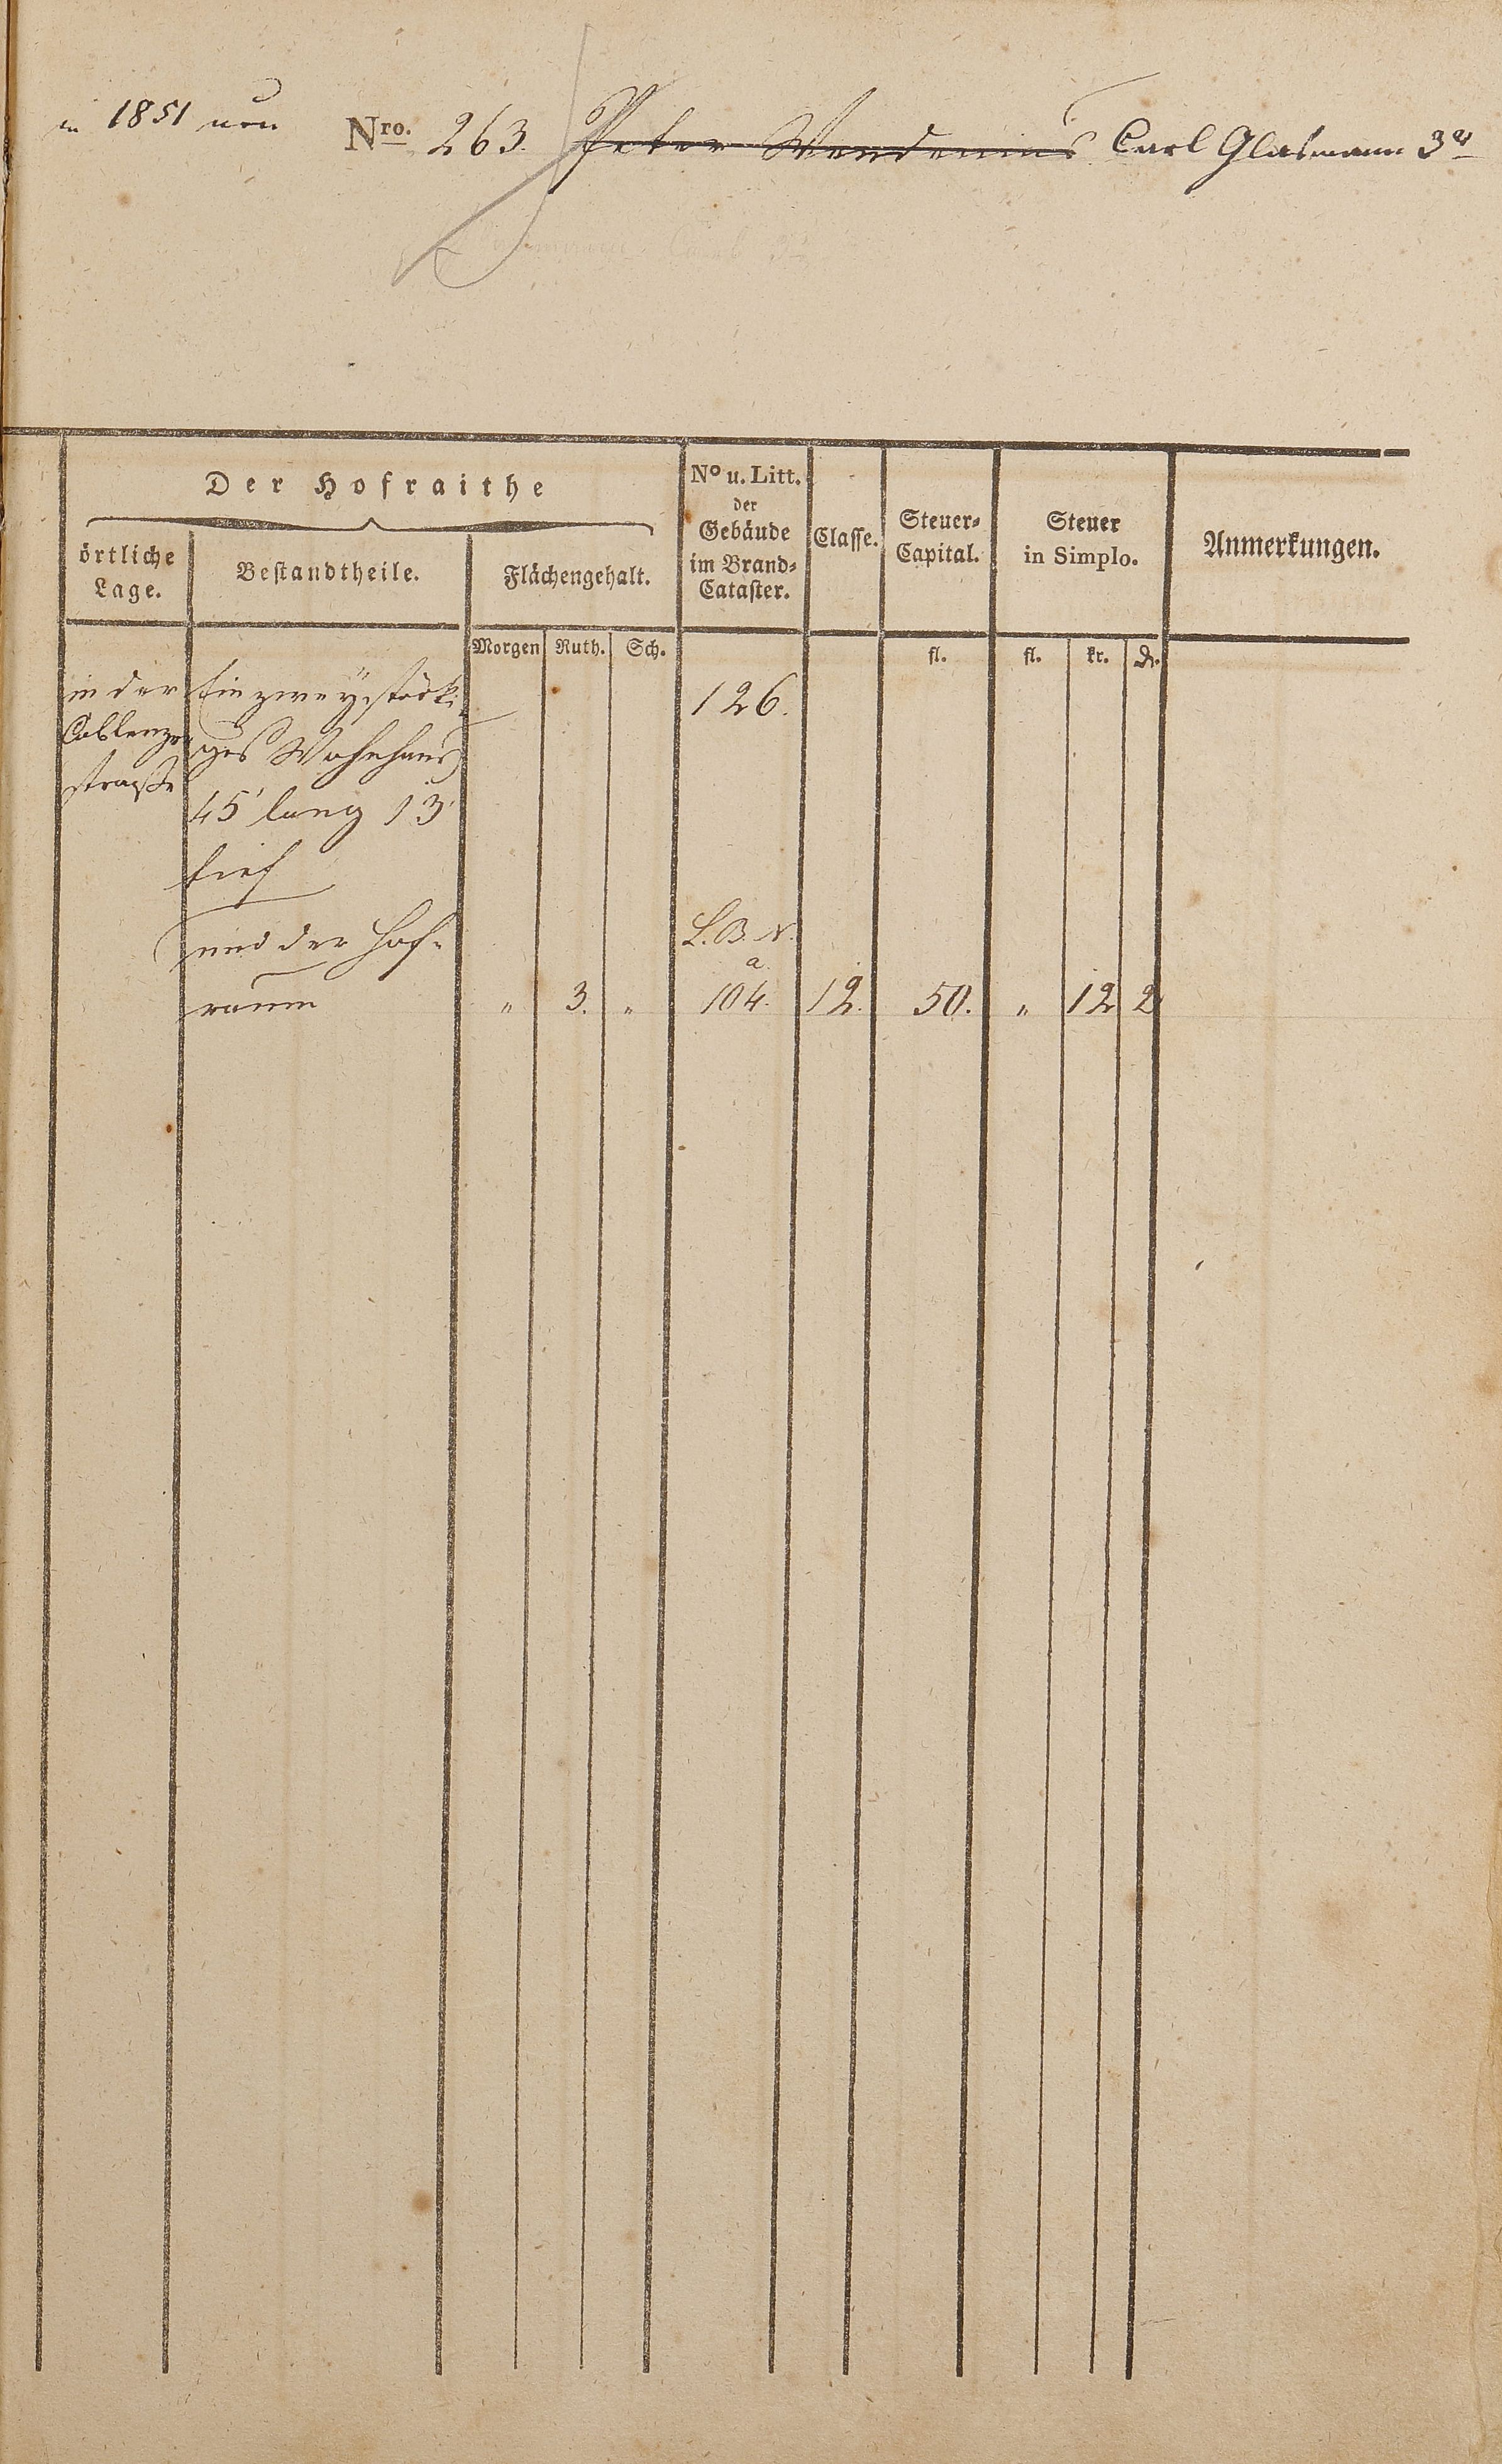 in 1851 neu
Nro. 263. Peter Wendenius Carl Glasmann 3r
Carl 3r
Der Hofraithe
örtliche
Lage.
Bestandtheile.
Flächengehalt.
No u. Litt.
der
Gebäude
im Brand-
Cataster.
Classe.
Steuer-
Capital.
Steuer
in Simplo.
Anmerkungen.
Morgen Ruth. Sch. fl. fl. kr. D.
in der Ein zweystöcki- 126.
Coblenzer ges Wohnhaus
straße
45' lang 13'
tief
und der Hof- L. B. N.
a
raum " 3. " 104. 12. 50. " 12 2